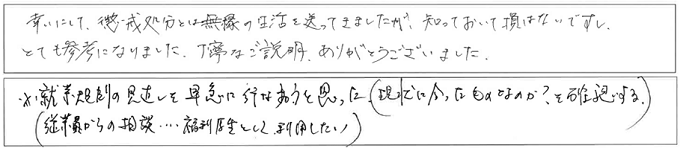 幸いにして、懲戒処分とは無縁の生活を送ってきましたが、知っておいて損はないですし、
とても参考になりました。丁寧なご説明、ありがとうございました。
就業規則の見直しを早急に行なおうと思った（現状に合ったものなのか？を確認する。）
（従業員からの相談…福利厚生として利用したい）